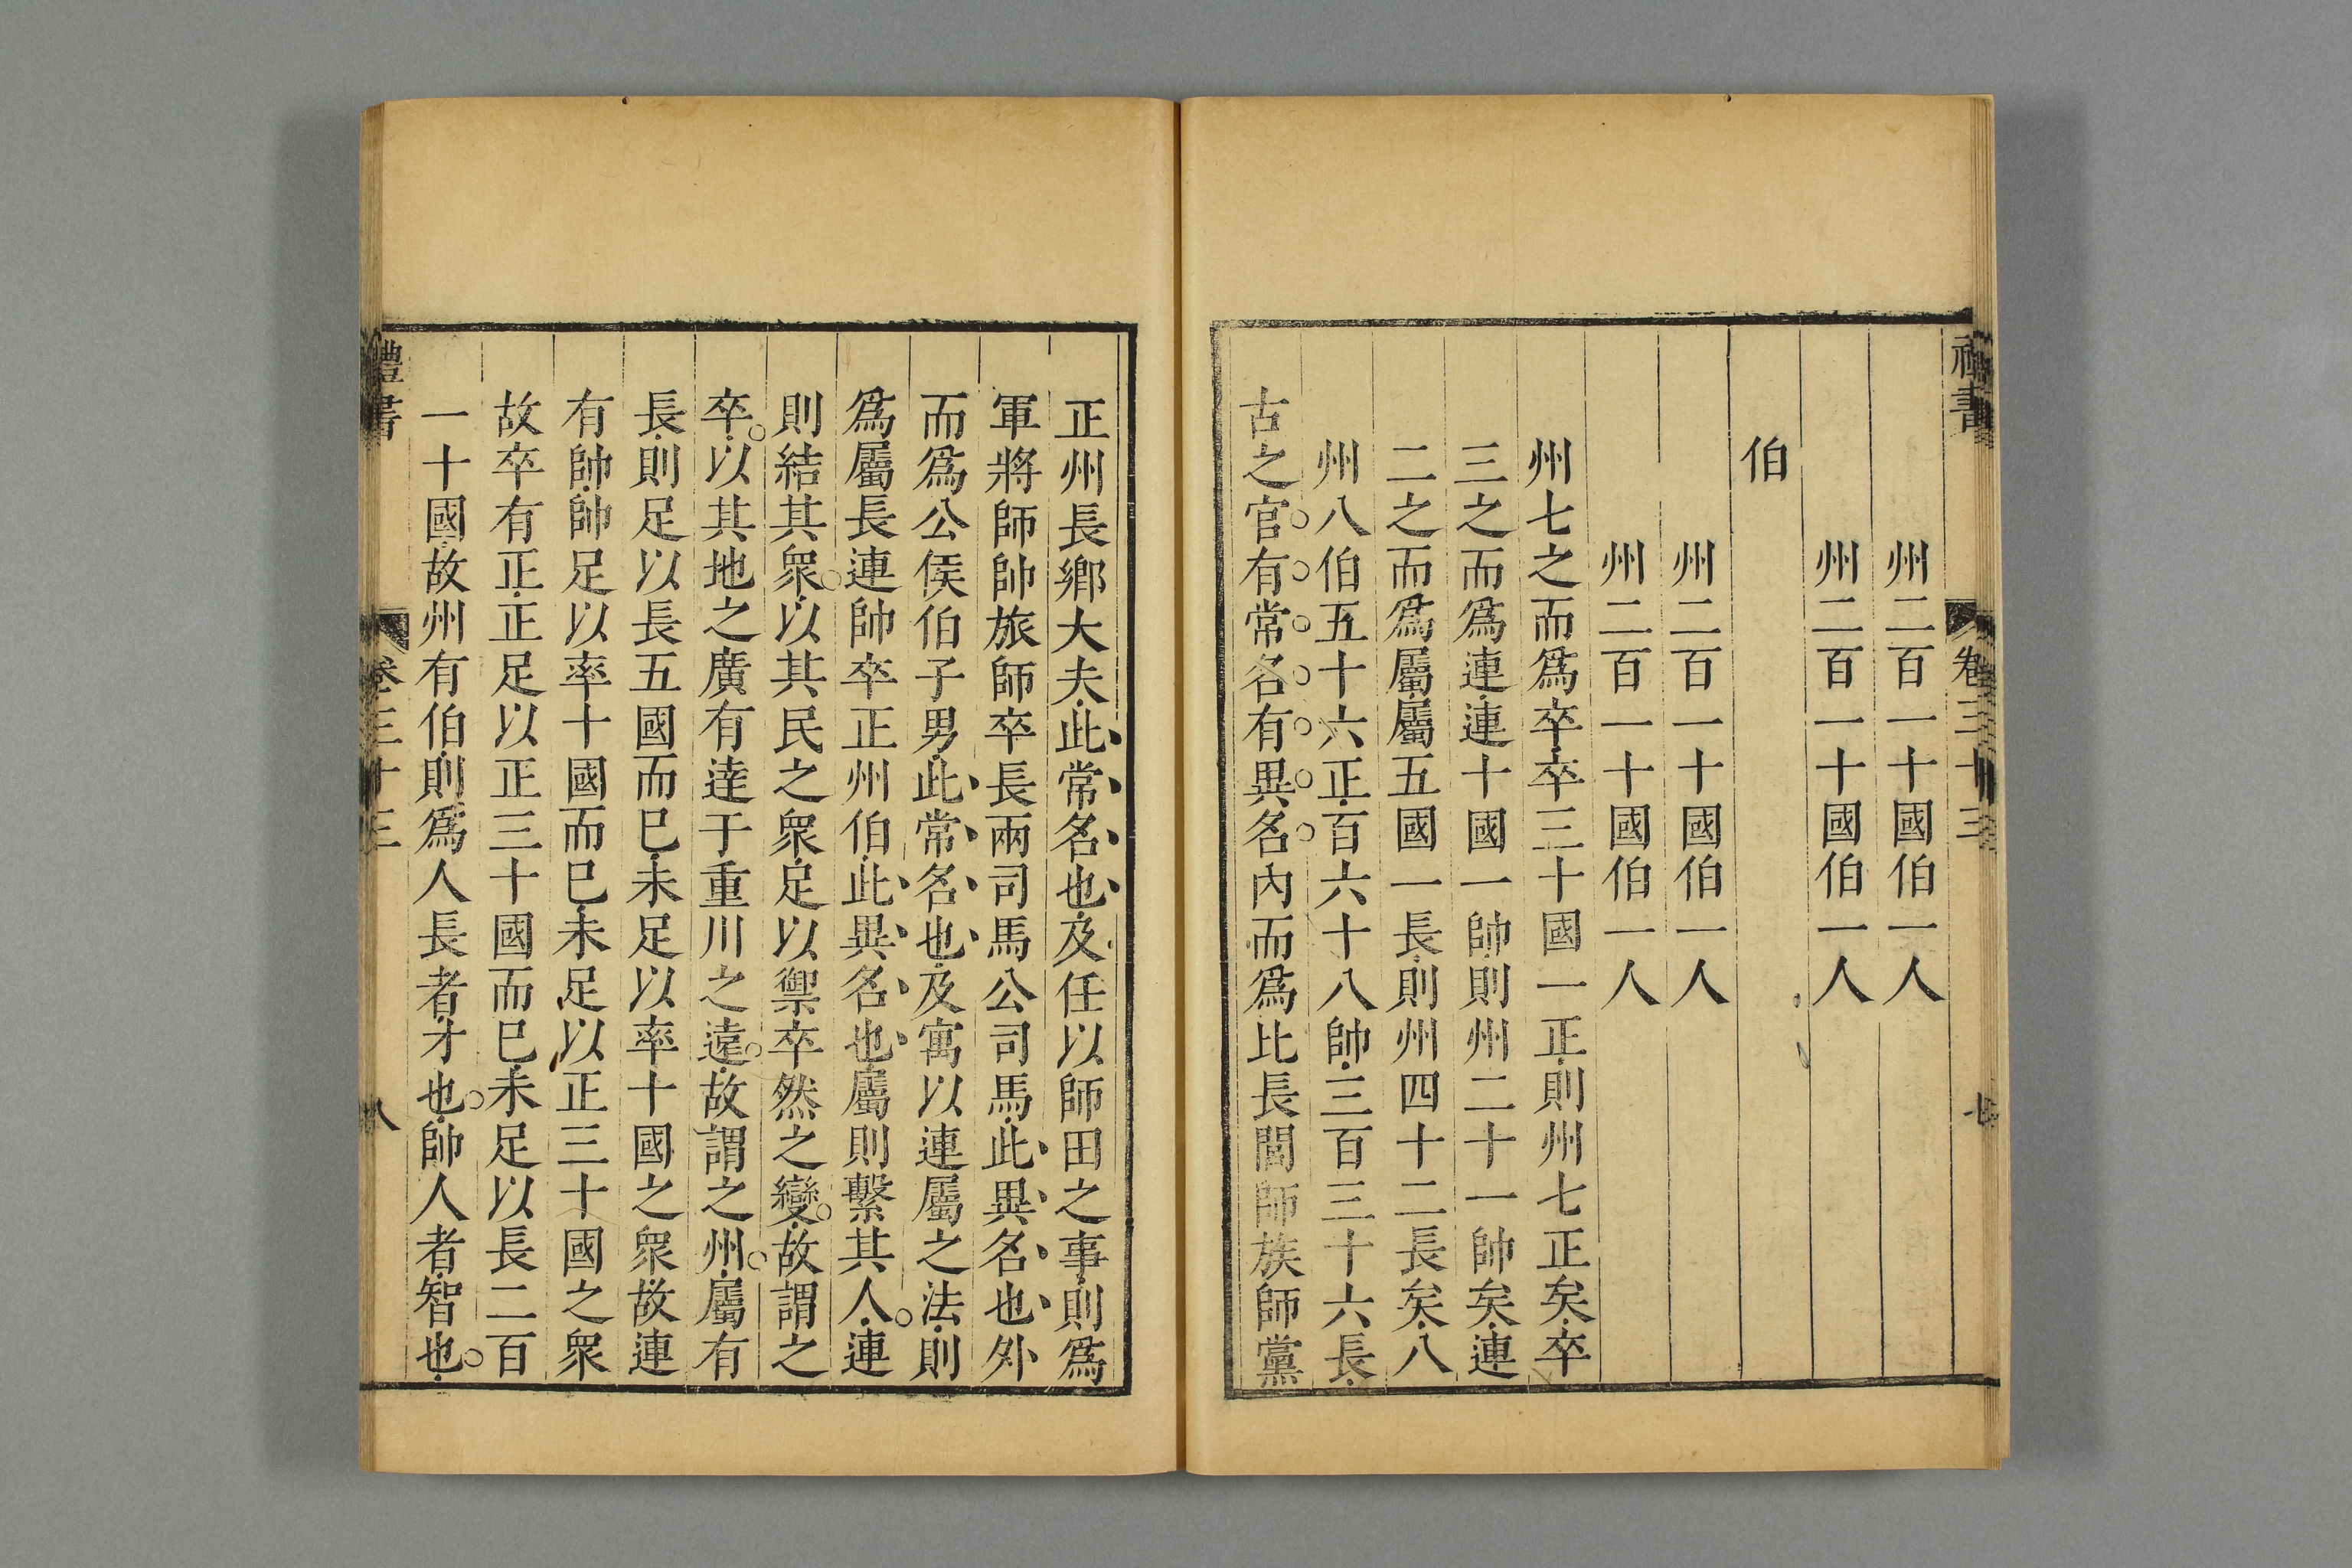 禮書
卷三十三
七
州二百一十國伯一人
州二百一十國伯一人
伯
州二百一十國伯一人
州二百一十國伯一人
州七之而爲卒卒三十國一正則州七正矣卒
三之而爲連連十國一帥則州二十一帥矣連
二之而爲屬屬五國一長則州四十二長矣八
州八伯五十六正百六十八帥三百三十六長
古之官有常名有異名內而爲比長閭師族師黨
正州長鄉大夫此常名也及任以師田之事則爲
軍將師帥旅師卒長兩司馬公司馬此異名也外
而爲公侯伯子男此常名也及寓以連屬之法則
爲屬長連帥卒正州伯此異名也屬則繫其人連
則結其衆以其民之衆足以禦卒然之變故謂之
卒以其地之廣有逹于重川之遠故謂之州屬有
長則足以長五國而巳未足以率十國之衆故連
有帥帥足以率十國而巳未足以正三十國之衆
故卒有正正足以正三十國而巳未足以長二百
一十國故州有伯則爲人長者才也帥人者智也
禮書
卷三十三
八